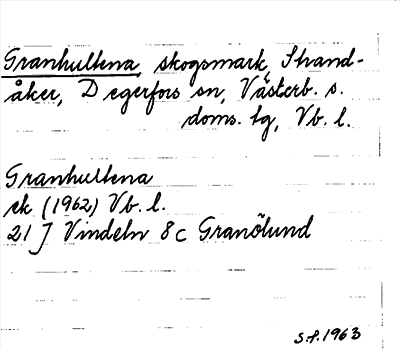 Granhultena, skogsmark, Strand-
åker, Degerfors sn, Västerb. s.
doms. lg, Vb. l.
Granhultena
ek (1962) Vb. l.
21 J Vindeln 8c Granölund
S.f. 1963